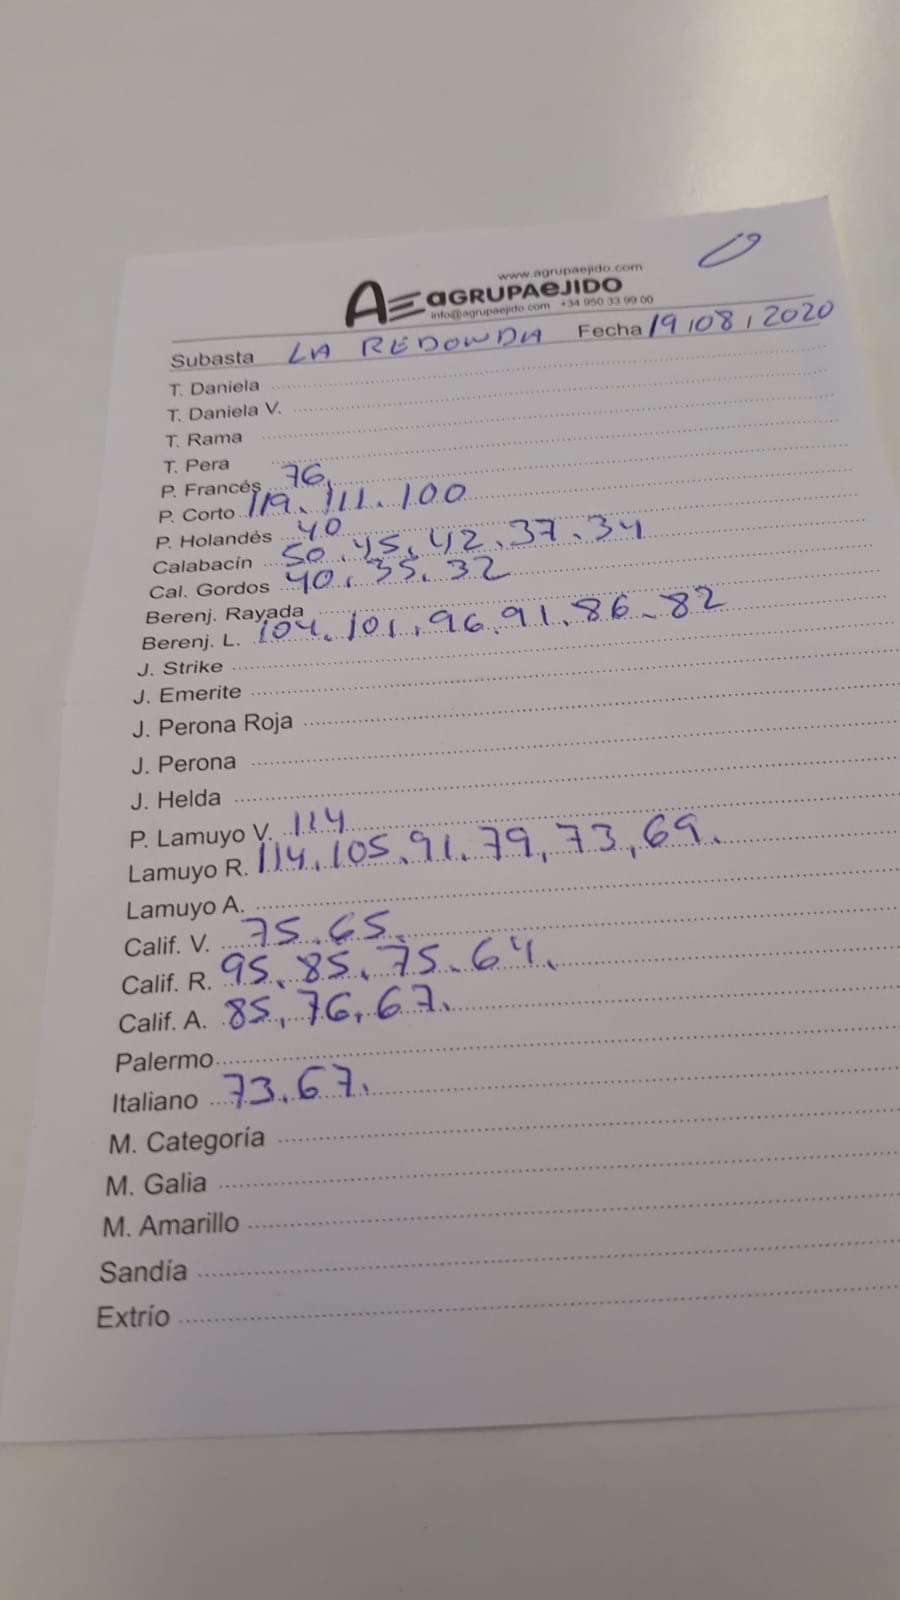 www.agrupaejido.com
AGRUPAEJIDO
info@agrupaejido.com +34 950 33 99 00
Subasta LA REDONDA Fecha 19/08/2020
T. Daniela
T. Daniela V.
T. Rama
T. Pera
P. Francés 76.
P. Corto 119. 111. 100
P. Holandés 40
Calabacín 50. 45. 42. 37. 34
Cal. Gordos 40. 35. 32
Berenj. Rayada
Berenj. L. 104. 101. 96. 91. 86. 82
J. Strike
J. Emerite
J. Perona Roja
J. Perona
J. Helda
P. Lamuyo V. 114
Lamuyo R. 114. 105. 91. 79, 73, 69.
Lamuyo A.
Calif. V. 75. 65.
Calif. R. 95. 85. 75. 64.
Calif. A. 85, 76, 67.
Palermo
Italiano 73. 67.
M. Categoría
M. Galia
M. Amarillo
Sandía
Extrío